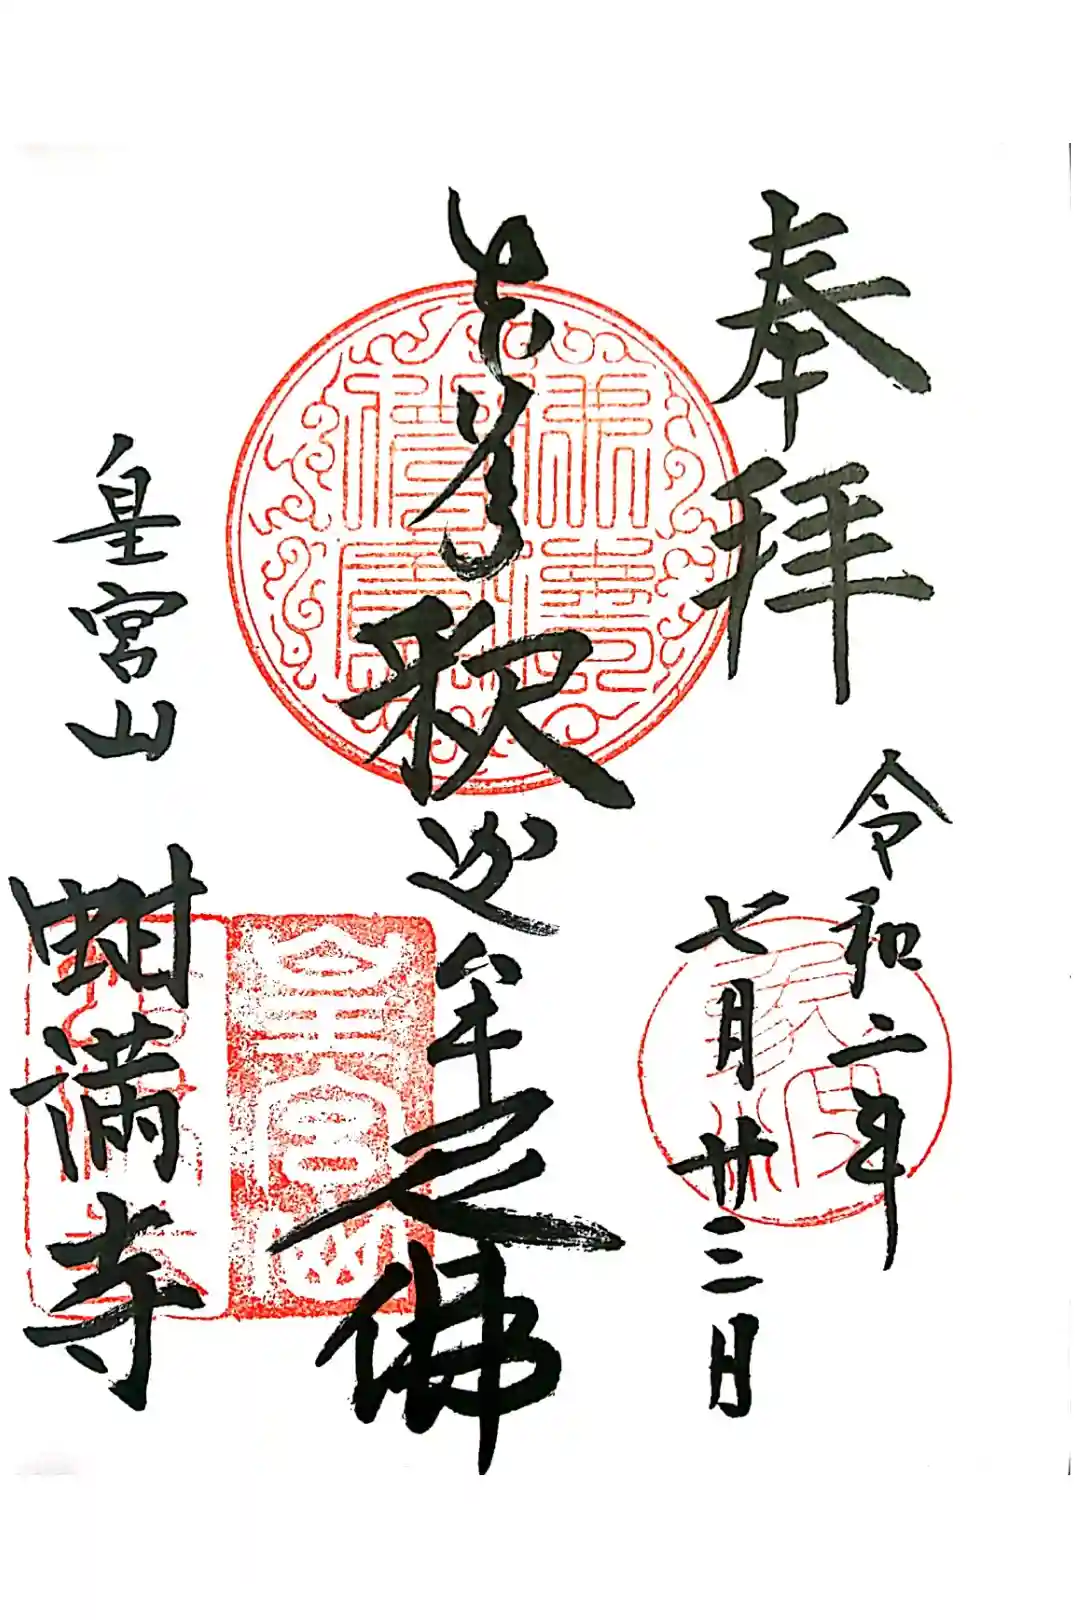 奉拝
令和二年
七月廿三日
本尊釈迦牟尼佛
皇宮山
蚶満寺
皇宮山